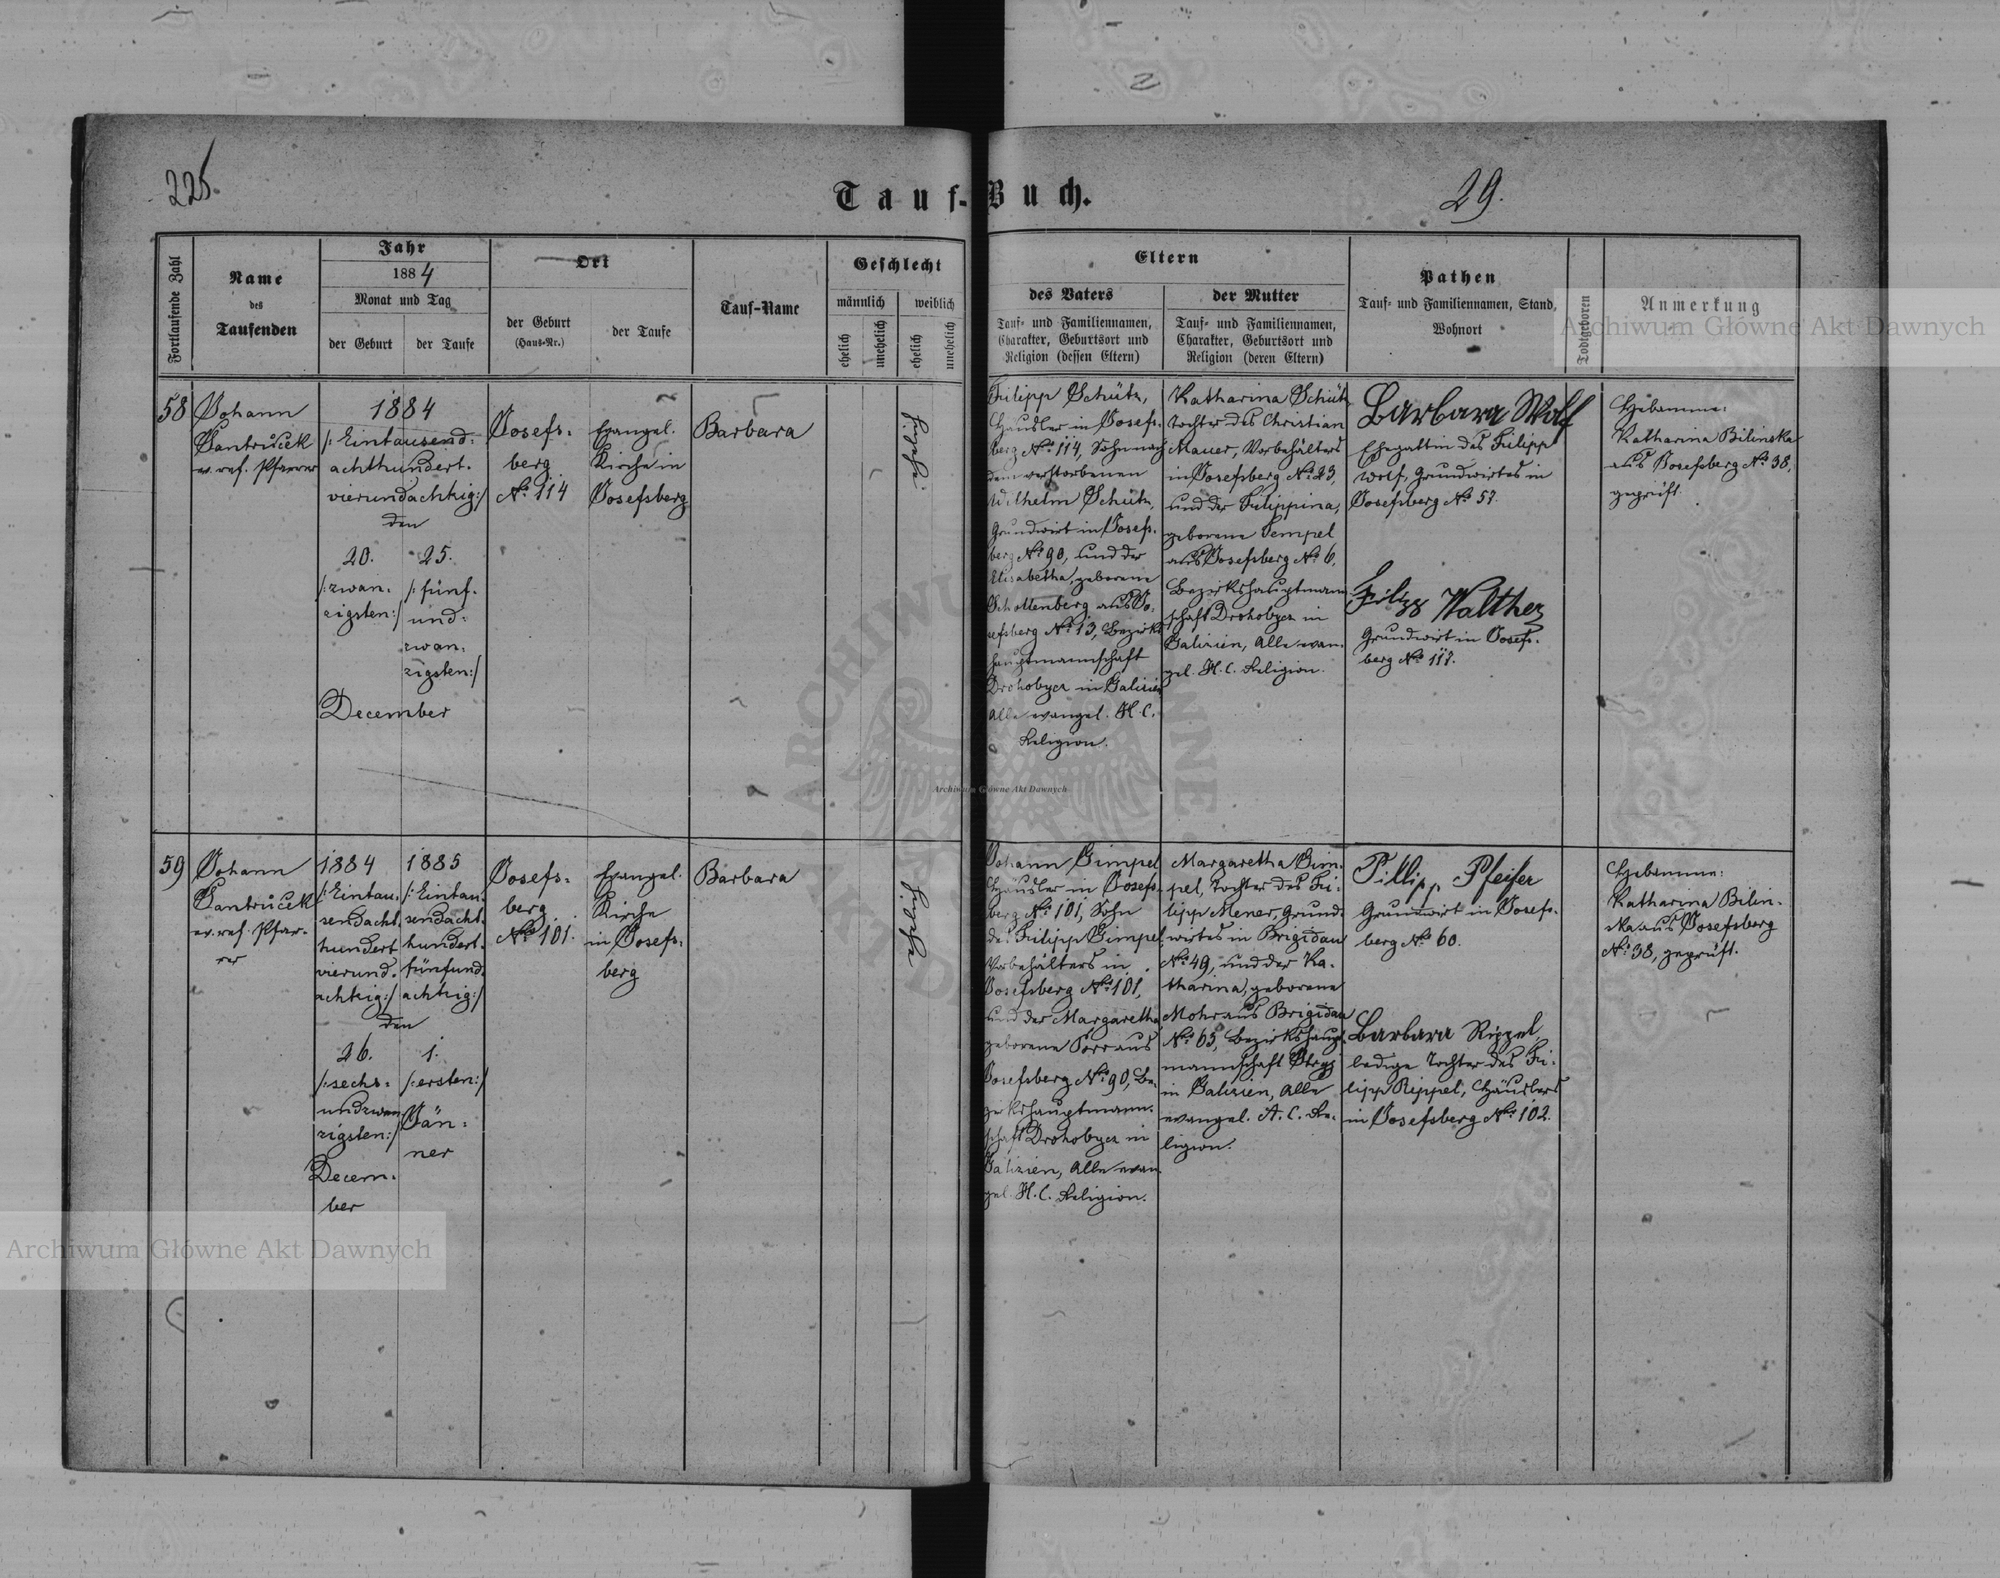 225.
Tauf-Buch.
29.
Fortlaufende Zahl
Name
des
Taufenden
Jahr
1884
Monat und Tag
der Geburt
der Taufe
Ort
der Geburt
(Haus-Nr.)
der Taufe
Tauf-Name
Geschlecht
männlich
weiblich
ehelich
unehelich
ehelich
unehelich
Eltern
des Vaters
Tauf- und Familiennamen,
Charakter, Geburtsort und
Religion (dessen Eltern)
der Mutter
Tauf- und Familiennamen,
Charakter, Geburtsort und
Religion (deren Eltern)
Pathen
Tauf- und Familiennamen, Stand,
Wohnort
Todtgeboren
Anmerkung
58
Johann
Jantruček
ev. ref. Pfarrer
1884
/: Eintausend-
achthundert-
vierundachtzig :/
den
20.
/: zwan-
zigsten :/
25.
/: fünf-
und-
zwan-
zigsten :/
December
Josefs-
berg
No 114
Evangel.
Kirche in
Josefsberg
Barbara
Filipp Schütz,
Häusler in Josefs-
berg No 114, Sohn nach
dem verstorbenen
Wilhelm Schütz,
Grundwirt in Josefs-
berg No 90, und der
Elisabetha, geborene
Schottenberg aus Jo-
sefsberg No 13, Bezirks-
hauptmannschaft
Drohobycz in Galizien
Alle evangel. H. C.
Religion.
Katharina Schütz
Tochter des Christian
Mauer, Vorbehälters
in Josefsberg No 23,
und der Filippina,
geborene Tempel
aus Josefsberg No 6,
Bezirkshauptmann-
schaft Drohobycz in
Galizien, Alle evan-
gel. H. C. Religion.
Barbara Wolf
Ehegattin des Filipp
Wolf, Grundwirtes in
Josefsberg No 57.
Filipp Walther
Grundwirt in Josefs-
berg No 117.
Hebamme:
Katharina Bilinska
aus Josefsberg No 38,
geprüft.
59
Johann
Jantruček
ev. ref. Pfar-
rer
1884
/: Eintau-
sendacht-
hundert
vierund-
achtzig :/
1885
/: Eintau-
sendacht-
hundert-
fünfund-
achtzig :/
den
26.
/: sechs-
undzwan-
zigsten :/
Decem-
ber
1.
/: ersten :/
Jän-
ner
Josefs-
berg
No 101.
Evangel.
Kirche
in Josefs-
berg
Barbara
Johann Gimpel
Häusler in Josefs-
berg No 101, Sohn
des Filipp Gimpel,
Vorbehälters in
Josefsberg No 101,
und der Margaretha
geborene Porr aus
Josefsberg No 90, Be-
zirkshauptmann-
schaft Drohobycz in
Galizien, Alle evan-
gel. H. C. Religion.
Margaretha Gim-
pel, Tochter des Fi-
lipp Mener, Grund-
wirtes in Brigidau
No 49, und der Ka-
tharina, geborene
Mohr aus Brigidau
No 65, Bezirkshaupt-
mannschaft Stryj
in Galizien, Alle
evangel. A. C. Re-
ligion.
Fillipp Pfeifer
Grundwirt in Josefs-
berg No 60.
Barbara Rippel,
ledige Tochter des Fi-
lipp Rippel, Häuslers
in Josefsberg No 102.
Hebamme:
Katharina Bilin-
ska aus Josefsberg
No 38, geprüft.
Archiwum Główne Akt Dawnych
Archiwum Główne Akt Dawnych
Archiwum Główne Akt Dawnych